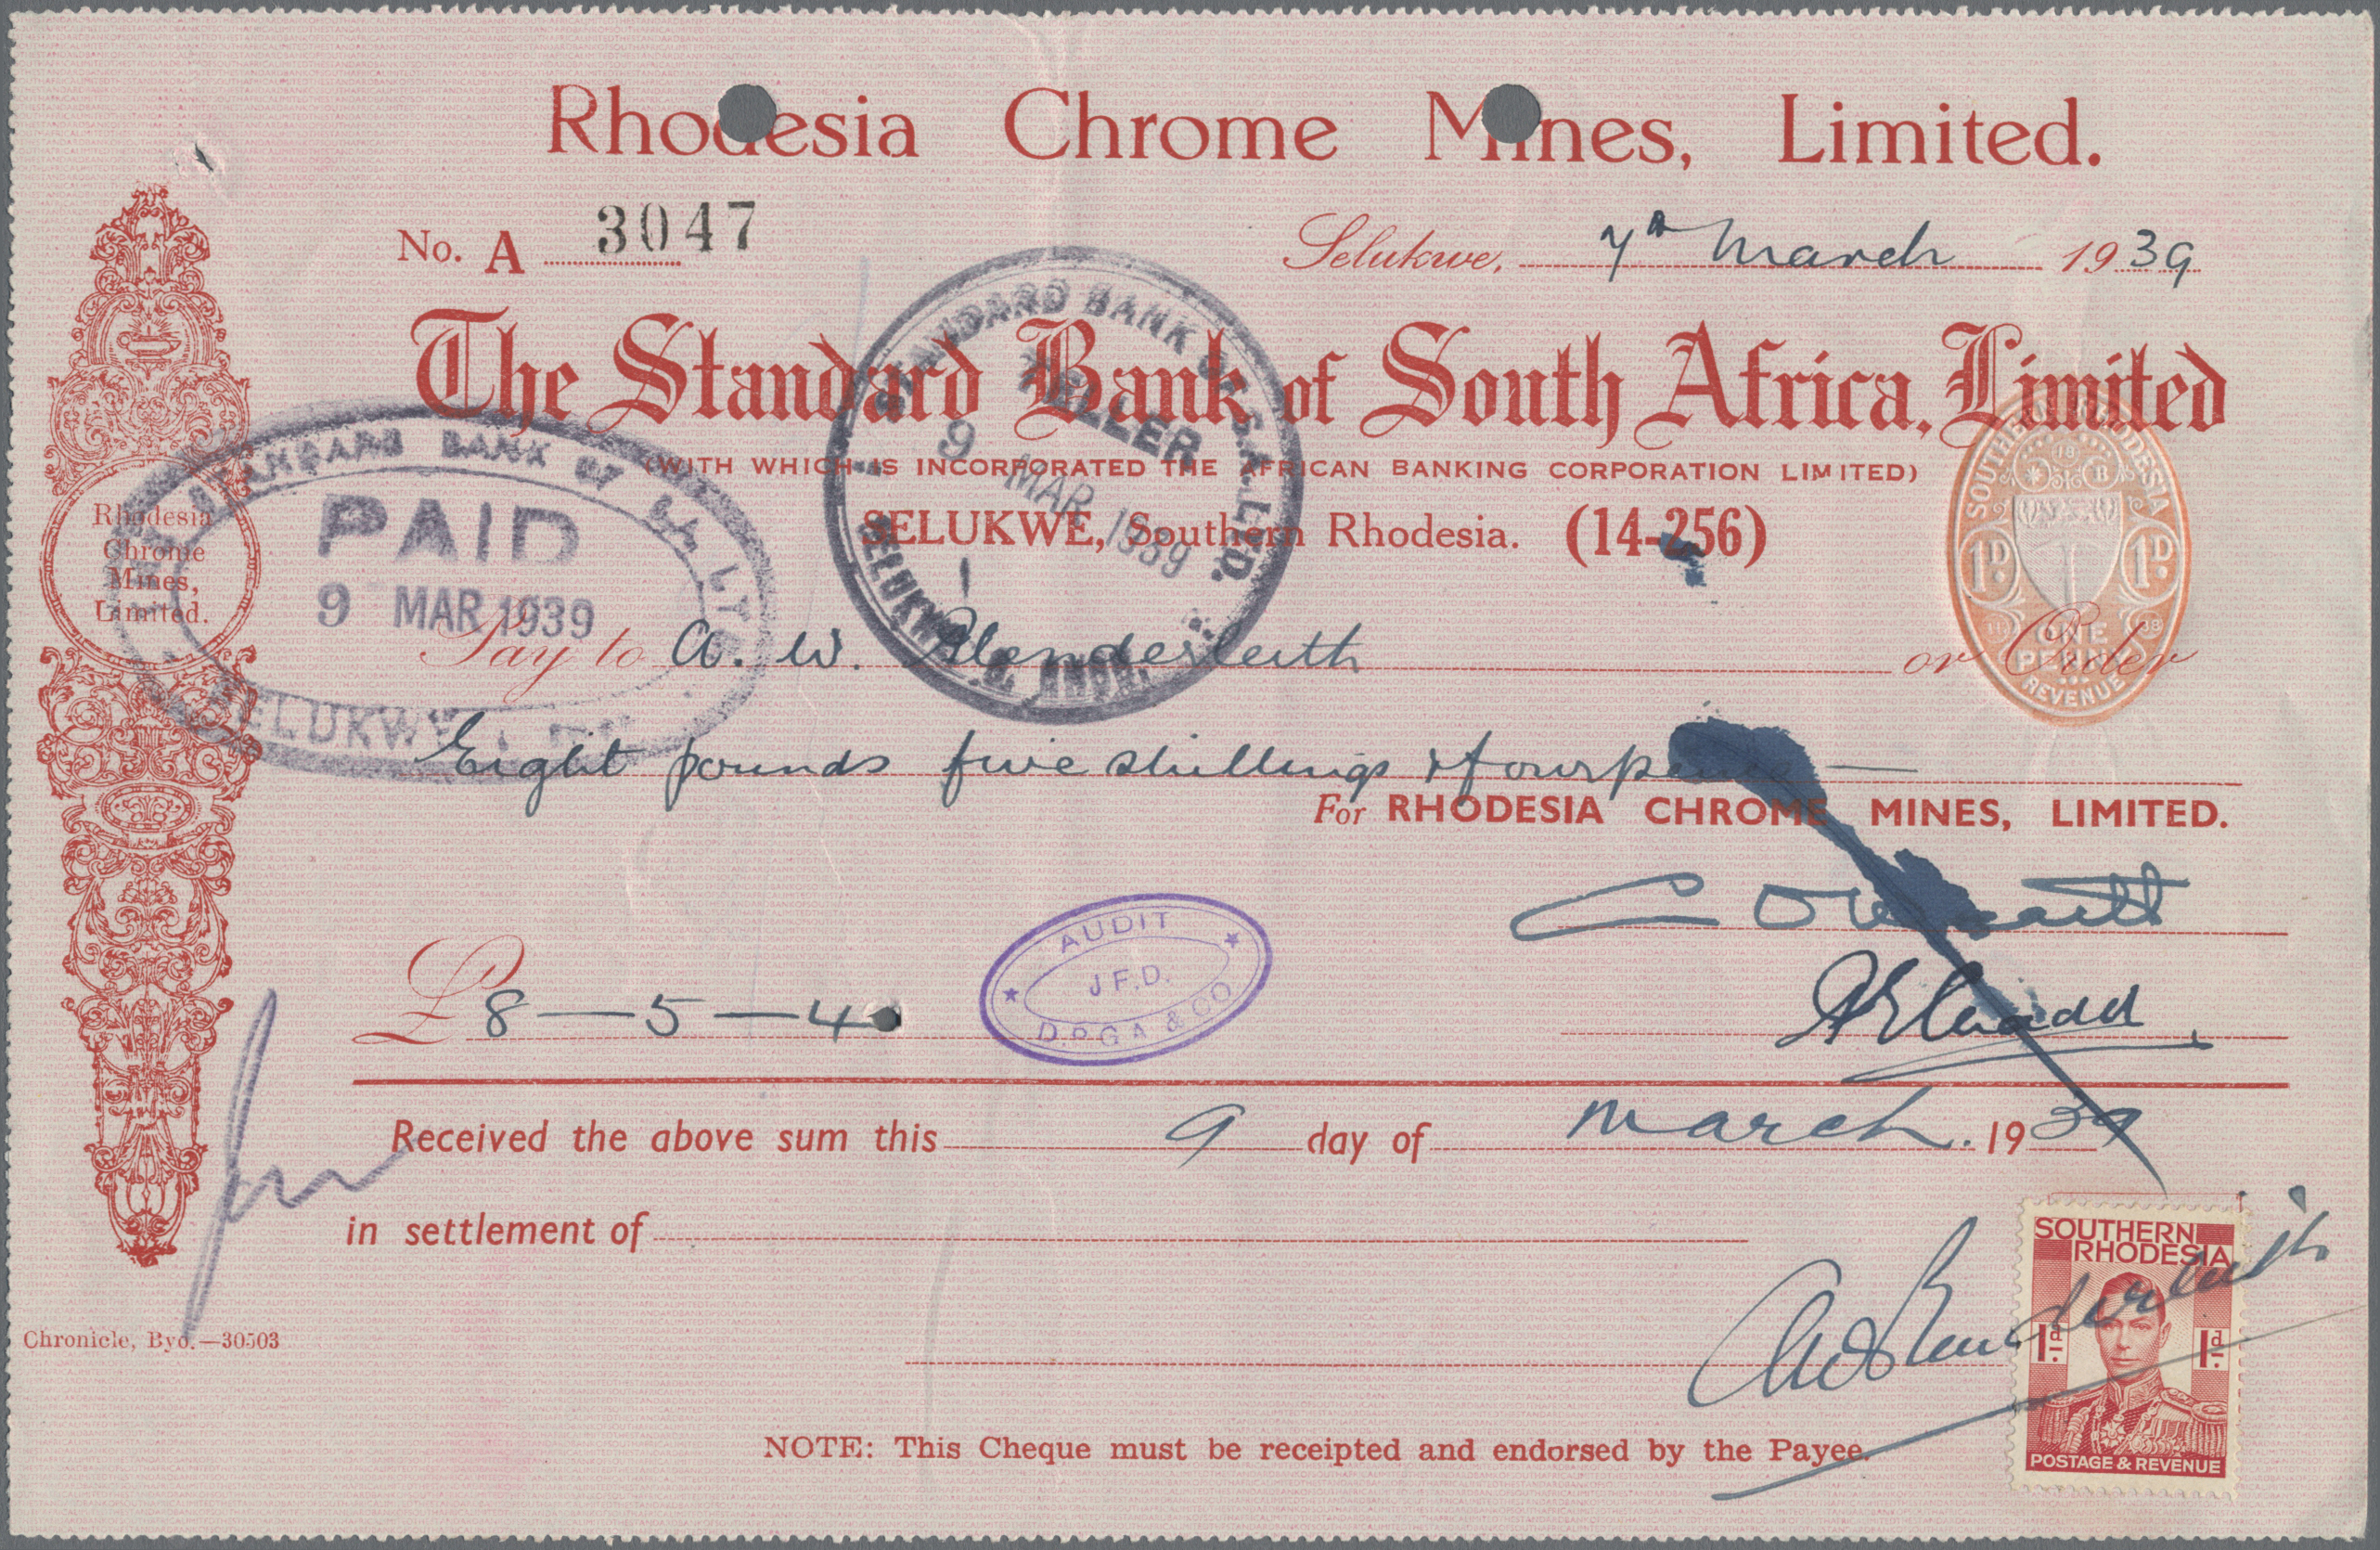 Rhodesia Chrome Mines, Limited.
No. A 3047
Selukwe, 7th March 1939
The Standard Bank of South Africa, Limited
(WITH WHICH IS INCORPORATED THE AFRICAN BANKING CORPORATION LIMITED)
SELUKWE, Southern Rhodesia. (14-256)
STANDARD BANK OF S.A. LTD.
TELLER
9 MAR 1939
1
SELUKWE
STANDARD BANK OF S.A. LTD
PAID
9 MAR 1939
SELUKWE
Rhodesia
Chrome
Mines,
Limited.
SOUTHERN RHODESIA
1D 1D
ONE
PENNY
REVENUE
Pay to A. W. Blenderleith or Order
Eight pounds five shillings & fourpence —
For RHODESIA CHROME MINES, LIMITED.
AUDIT
J.F.D.
D.P.G.A & CO
£ 8 — 5 — 4
Received the above sum this 9 day of March. 1939
in settlement of
SOUTHERN
RHODESIA
1d. 1d.
POSTAGE & REVENUE
Chronicle, Byo.—30503
NOTE: This Cheque must be receipted and endorsed by the Payee.